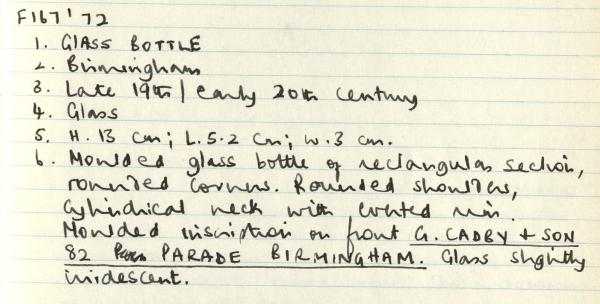 F167'72
1. GLASS BOTTLE
2. Birmingham
3. Late 19th / early 20th century
4. Glass
5. H. 13 cm; L. 5.2 cm; W. 3 cm.
6. Moulded glass bottle of rectangular section,
rounded corners. Rounded shoulders,
cylindrical neck with everted rim.
Moulded inscription on front G. CADBY + SON
82 PARADE BIRMINGHAM. Glass slightly
iridescent.